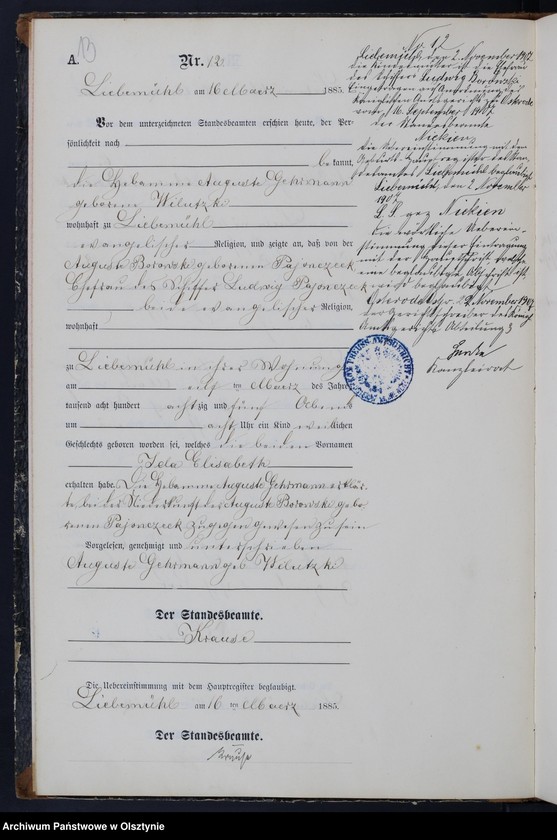 A.
13
Nr. 12
Liebemühl am 16 Maerz 1885.
Vor dem unterzeichneten Standesbeamten erschien heute, der Per-
sönlichkeit nach
bekannt,
die Hebamme Auguste Gehrmann
geborene Wilutzki
wohnhaft zu Liebemühl
evangelischer Religion, und zeigte an, daß von der
Auguste Borowski geborenen Pajonczeck
Ehefrau des Schiffer Ludwig Pajonczeck
beide evangelischer Religion,
wohnhaft
zu Liebemühl in ihrer Wohnung
am elf ten Maerz des Jahres
tausend acht hundert achtzig und fünf Abends
um acht Uhr ein Kind weiblichen
Geschlechts geboren worden sei, welches die beiden Vornamen
Ida Elisabeth
erhalten habe. Die Hebamme Auguste Gehrmann erklär-
te, bei der Niederkunft der Auguste Borowski gebo-
renen Pajonczeck zugegen gewesen zu sein
Vorgelesen, genehmigt und unterschrieben
Auguste Gehrmann geb Wilutzki
Der Standesbeamte.
Krause
Die Uebereinstimmung mit dem Hauptregister beglaubigt.
Liebemühl am 16 ten Maerz 1885.
Der Standesbeamte.
Krause
N 12
Liebemühl, den 2. November 1907
die Kindesmutter ist die Ehefrau
des Schiffers Ludwig Borowski
Eingetragen auf Anordnung des
Königlichen Amtsgerichts zu Osterode
vom 16. September 1907.
der Standesbeamte
Nickien
Die Uebereinstimmung mit dem
Liebemühl, den 2 November
1907
L. S. gez Nickien
Die wörtliche Ueberein-
stimmung dieser Eintragung
Osterode Ostpr. November 1907
der Gerichtsschreiber des Königl
Amtsgerichts Abteilung 3
Kanzleirat
KÖN. PREUSS. AMTSGERICHT
Archiwum Państwowe w Olsztynie